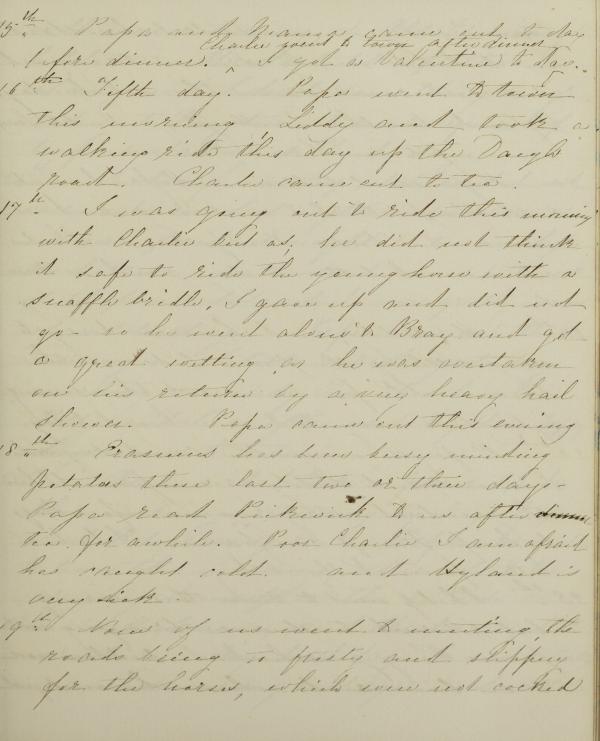 15th Papa and Mama came out to day
Charlie went to town after dinner
before dinner. I got a Valentine to day.
16th Fifth day. Papa went to town
this morning, Liddy and took a
walking ride this day up the Dargle
road. Charlie came out to tea.
17th I was going out to ride this morning
with Charlie but as, he did not think
it safe to ride the young horse with a
snaffle bridle, I gave up and did not
go - so he went alone to Bray and got
a great wetting as he was overtaken
on his return by a very heavy hail
shower. Papa came out this evening
18th Erasmus has been busy minding
potatoes these last two or three days -
Papa read Pickwick to us after dinner
tea for awhile. Poor Charlie I am afraid
has caught cold. and Hyland is
very sick.
19th None of us went to meeting, the
roads being so frosty and slippery
for the horses, which were not cocked